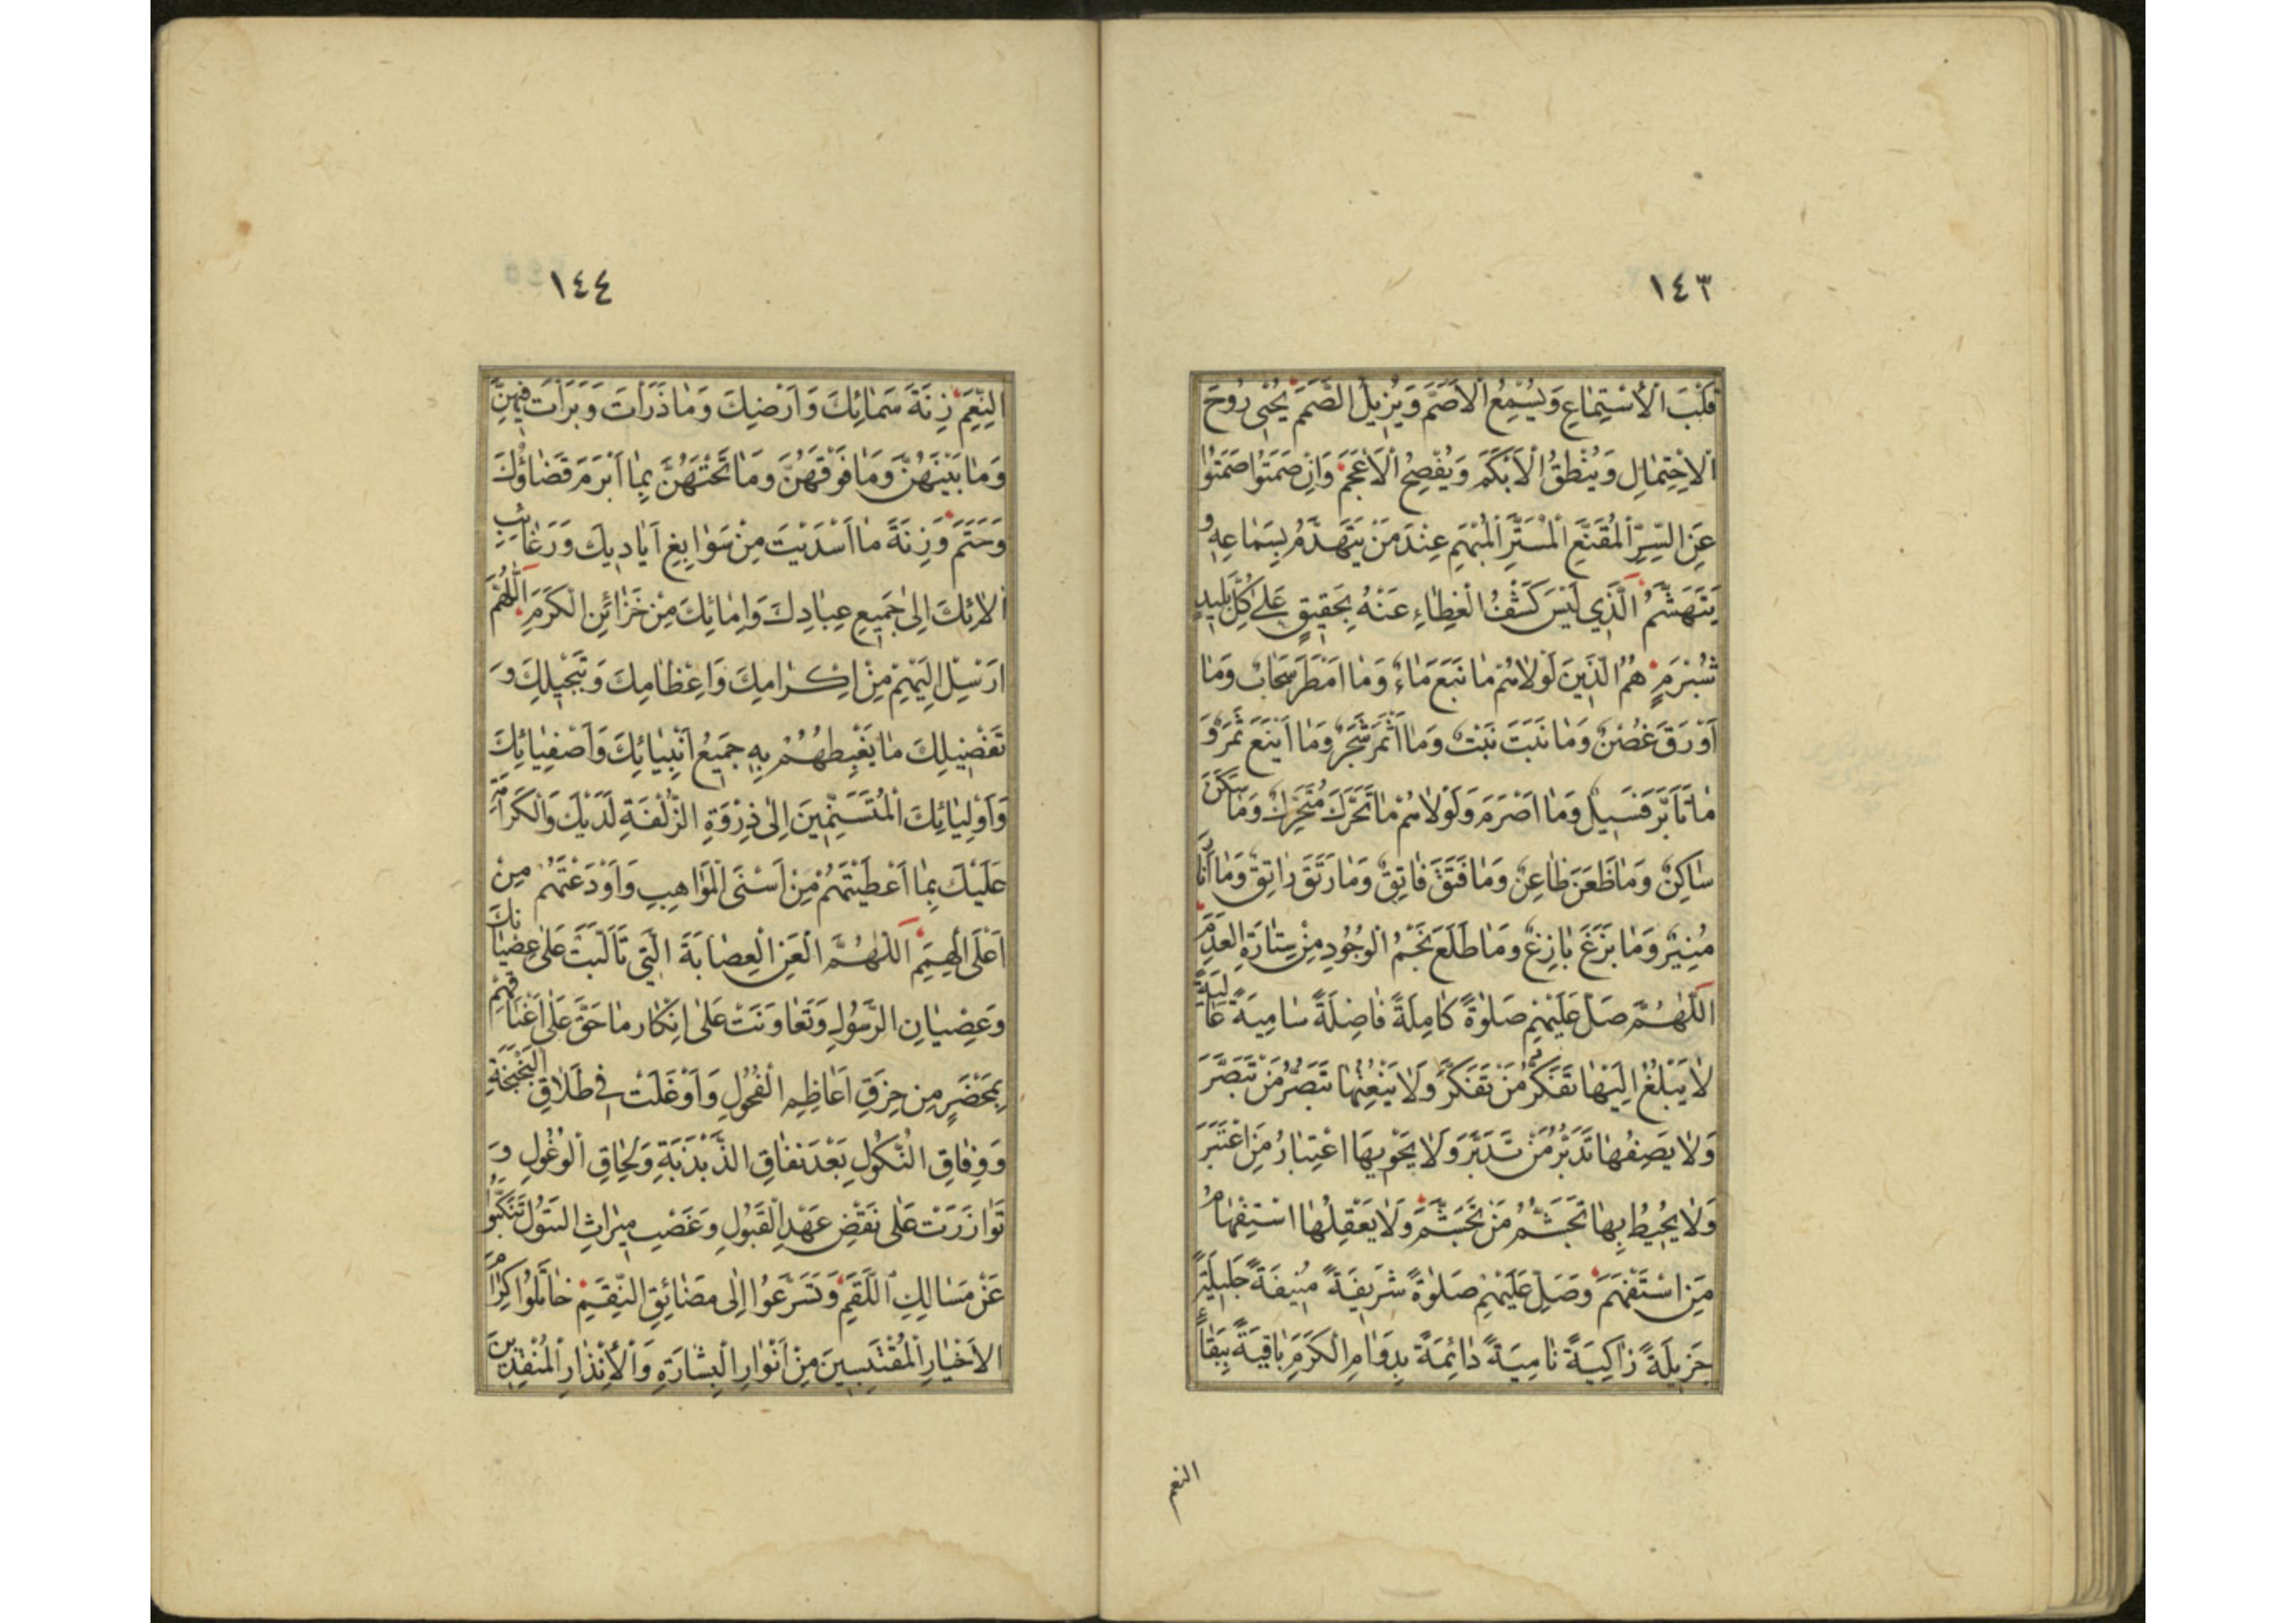 ١٤٣
قَلْبَ الْاِسْتِمَاعِ وَيُسْمِعُ الْاَصَمَّ وَيُزِيلُ الصَّمَمَ يُحْيِى رُوحَ
الْاِحْتِمَالِ وَيُنْطِقُ الْاَبْكَمَ وَيُفْصِحُ الْاَعْجَمَ وَاِنْ صَمَتُوا صَمَتُوا
عَنِ السِّرِّ الْمُقَنَّعِ الْمُسَتَّرِ الْمُبْهَمِ عِنْدَ مَنْ يَتَهَدَّمُ بِسَمَاعِهِ وَ
يَتَهَشَّمُ الَّذِي لَيْسَ كَشْفُ الْغِطَاءِ عَنْهُ بِحَقِيقٍ عَلَى كُلِّ بَلِيدٍ
شُبْرُمٍ هُمُ الَّذِينَ لَوْلَاهُمْ مَا نَبَعَ مَاءٌ وَمَا اَمْطَرَ سَحَابٌ وَمَا
اَوْرَقَ غُصْنٌ وَمَا نَبَتَ نَبْتٌ وَمَا اَثْمَرَ شَجَرٌ وَمَا اَيْنَعَ ثَمَرٌ وَ
مَا تَاَبَّرَ فَسِيلٌ وَمَا اَصْرَمَ وَلَوْلَاهُمْ مَا تَحَرَّكَ مُتَحَرِّكٌ وَمَا سَكَنَ
سَاكِنٌ وَمَا ظَعَنَ ظَاعِنٌ وَمَا فَتَقَ فَاتِقٌ وَمَا رَتَقَ رَاتِقٌ وَمَا اَنَارَ
مُنِيرٌ وَمَا بَزَغَ بَازِغٌ وَمَا طَلَعَ نَجْمُ الْوُجُودِ مِنْ سِتَارَةِ الْعَدَمِ
اَللّٰهُمَّ صَلِّ عَلَيْهِمْ صَلٰوةً كَامِلَةً فَاضِلَةً سَامِيَةً عَالِيَةً
لَا يَبْلُغُ اِلَيْهَا تَفَكُّرُ مَنْ تَفَكَّرَ وَلَا يَنْعِتُهَا تَبَصُّرُ مَنْ تَبَصَّرَ
وَلَا يَصِفُهَا تَدَبُّرُ مَنْ تَدَبَّرَ وَلَا يَحْوِيهَا اعْتِبَارُ مَنِ اعْتَبَرَ
وَلَا يُحِيطُ بِهَا تَجَشُّمُ مَنْ تَجَشَّمَ وَلَا يَعْقِلُهَا اسْتِفْهَامُ
مَنِ اسْتَفْهَمَ وَصَلِّ عَلَيْهِمْ صَلٰوةً شَرِيفَةً مُنِيفَةً جَلِيلَةً
جَزِيلَةً زَاكِيَةً نَامِيَةً دَائِمَةً بِدَوَامِ الْكَرَمِ بَاقِيَةً بِبَقَاءِ
النعم
١٤٤
النِّعَمِ زِنَةَ سَمَائِكَ وَاَرْضِكَ وَمَا ذَرَاْتَ وَبَرَاْتَ فِيهِنَّ
وَمَا بَيْنَهُنَّ وَمَا فَوْقَهُنَّ وَمَا تَحْتَهُنَّ بِمَا اَبْرَمَ قَضَاؤُكَ
وَحَتَمَ وَزِنَةَ مَا اَسْدَيْتَ مِنْ سَوَابِغِ اَيَادِيكَ وَرَغَائِبِ
اٰلَائِكَ اِلٰى جَمِيعِ عِبَادِكَ وَاِمَائِكَ مِنْ خَزَائِنِ الْكَرَمِ اَللّٰهُمَّ
اَرْسِلْ اِلَيْهِمْ مِنْ اِكْرَامِكَ وَاِعْظَامِكَ وَتَبْجِيلِكَ وَ
تَفْضِيلِكَ مَا يَغْبِطُهُمْ بِهِ جَمِيعُ اَنْبِيَائِكَ وَاَصْفِيَائِكَ
وَاَوْلِيَائِكَ الْمُتَسَنِّمِينَ اِلٰى ذِرْوَةِ الزُّلْفَةِ لَدَيْكَ وَالْكَرَامَةِ
عَلَيْكَ بِمَا اَعْطَيْتَهُمْ مِنْ اَسْنَى الْمَوَاهِبِ وَاَوْدَعْتَهُمْ مِنْ
اَعْلَى الْهِمَمِ اَللّٰهُمَّ الْعَنِ الْعِصَابَةَ الَّتِي تَاَلَّبَتْ عَلٰى عِصْيَانِكَ
وَعِصْيَانِ الرَّسُولِ وَتَعَاوَنَتْ عَلٰى اِنْكَارِ مَا حَقَّ عَلٰى اَعْنَاقِهِمْ
بِمَحْضَرٍ مِنْ حِزَقِ اَعَاظِمِ الْفُحُولِ وَاَوْغَلَتْ فِي طَلَاقِ الْبَخْبَخَةِ
وَوِفَاقِ النُّكُولِ بَعْدَ نِفَاقِ الذَّبْذَبَةِ وَلِحَاقِ الْوُغُولِ وَ
تَوَازَرَتْ عَلٰى نَقْضِ عَهْدِ الْقَبُولِ وَغَصْبِ مِيرَاثِ الْبَتُولِ تَنَكَّبُوا
عَنْ مَسَالِكِ اللَّقَمِ وَتَسَرَّعُوا اِلٰى مَضَائِقِ النِّقَمِ خَاتَلُوا كِرَامَ
الْاَخْيَارِ الْمُقْتَبِسِينَ مِنْ اَنْوَارِ الْبِشَارَةِ وَالْاِنْذَارِ الْمُنْقِذِينَ